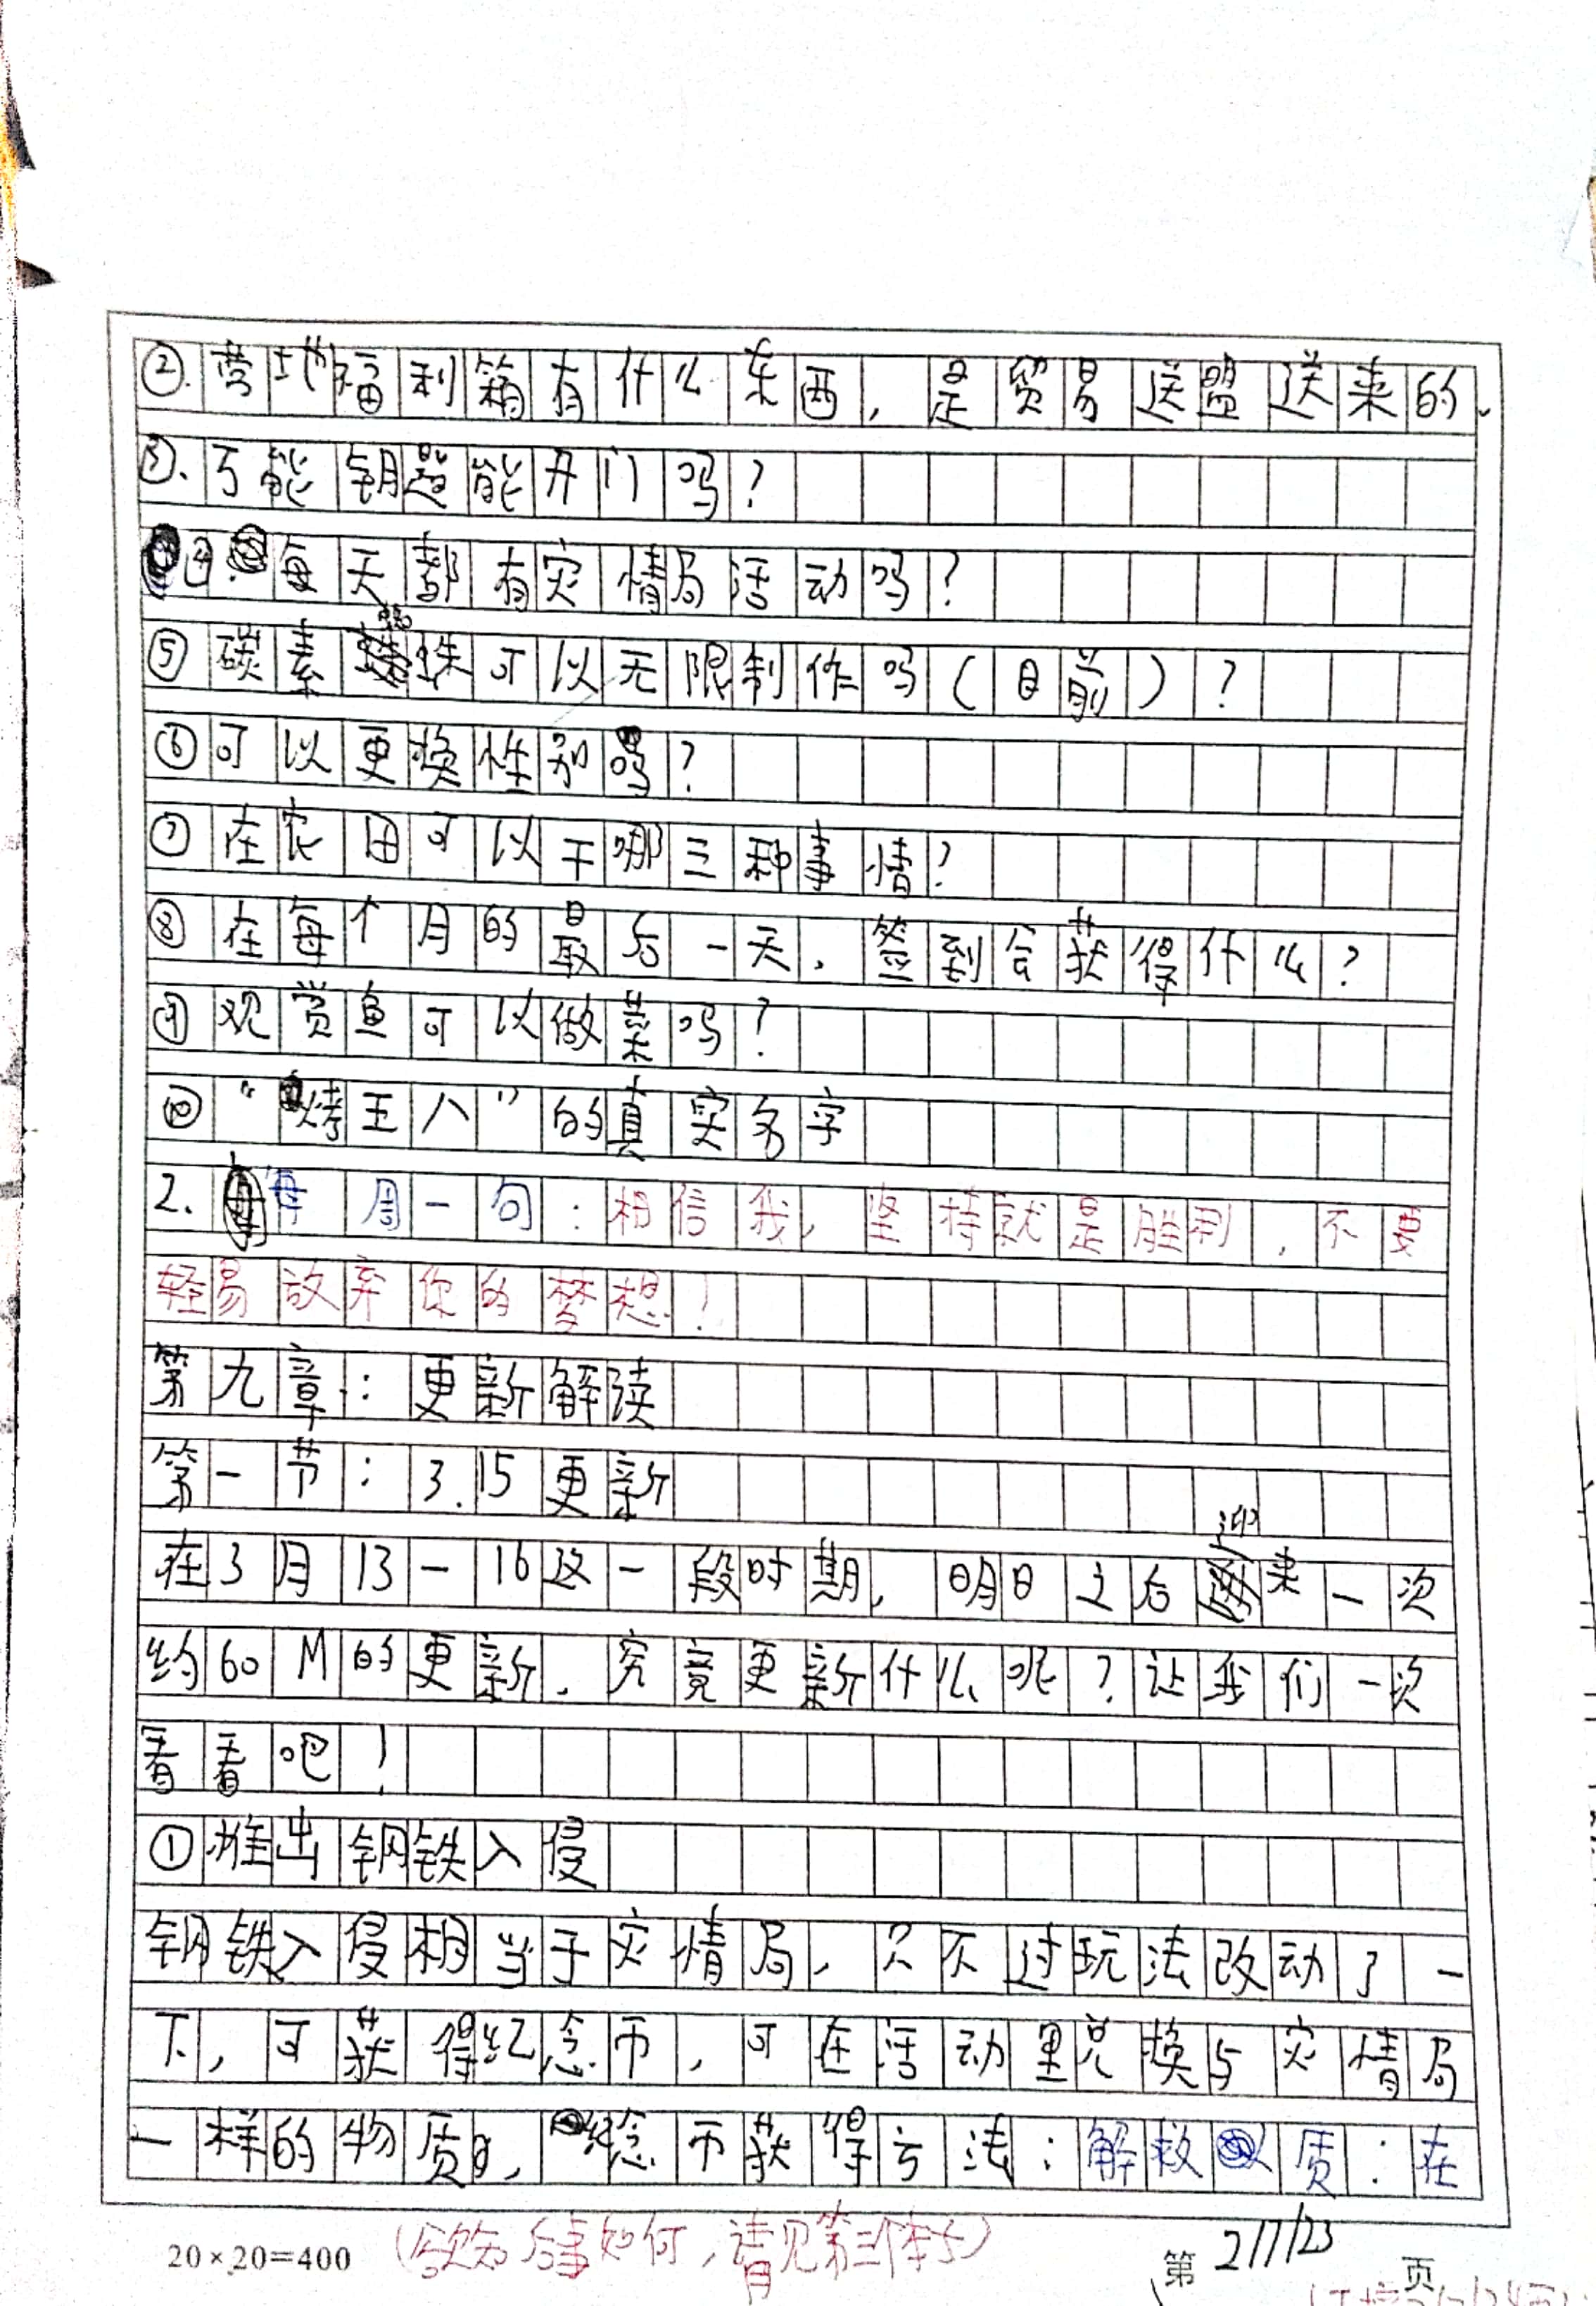 ②.营地福利箱有什么东西,是贸易送盟送来的.
③.万能钥匙能开门吗?
④.每天都有灾情局活动吗?
⑤碳素蛛可以无限制作吗(目前)?
⑥可以更换性别吗?
⑦在农田可以干哪三种事情?
⑧在每个月的最后一天,签到会获得什么?
⑨观赏鱼可以做菜吗?
⑩“烤王八”的真实名字
2.每周一句:相信我,坚持就是胜利,不要
轻易放弃你的梦想!
第九章:更新解读
第一节:3.15更新
在3月13-16这一段时期,明日之后迎来一次
约60M的更新.究竟更新什么呢?让我们一次
看看吧!
①推出钢铁入侵
钢铁入侵相当于灾情局,只不过玩法改动了一
下,可获得纪念币,可在活动里兑换与灾情局
一样的物质,纪念币获得方法:解救人质:在
20×20=400
(欲知后事如何,请见第三本子)
第 217/23 页